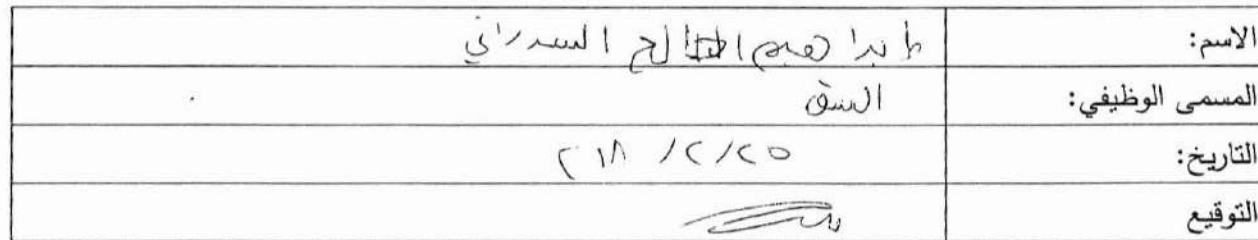 الاسم: ابراهيم الصالح السدراني
المسمى الوظيفي:
التاريخ: ٢٥/٢/ ٢١٨
التوقيع